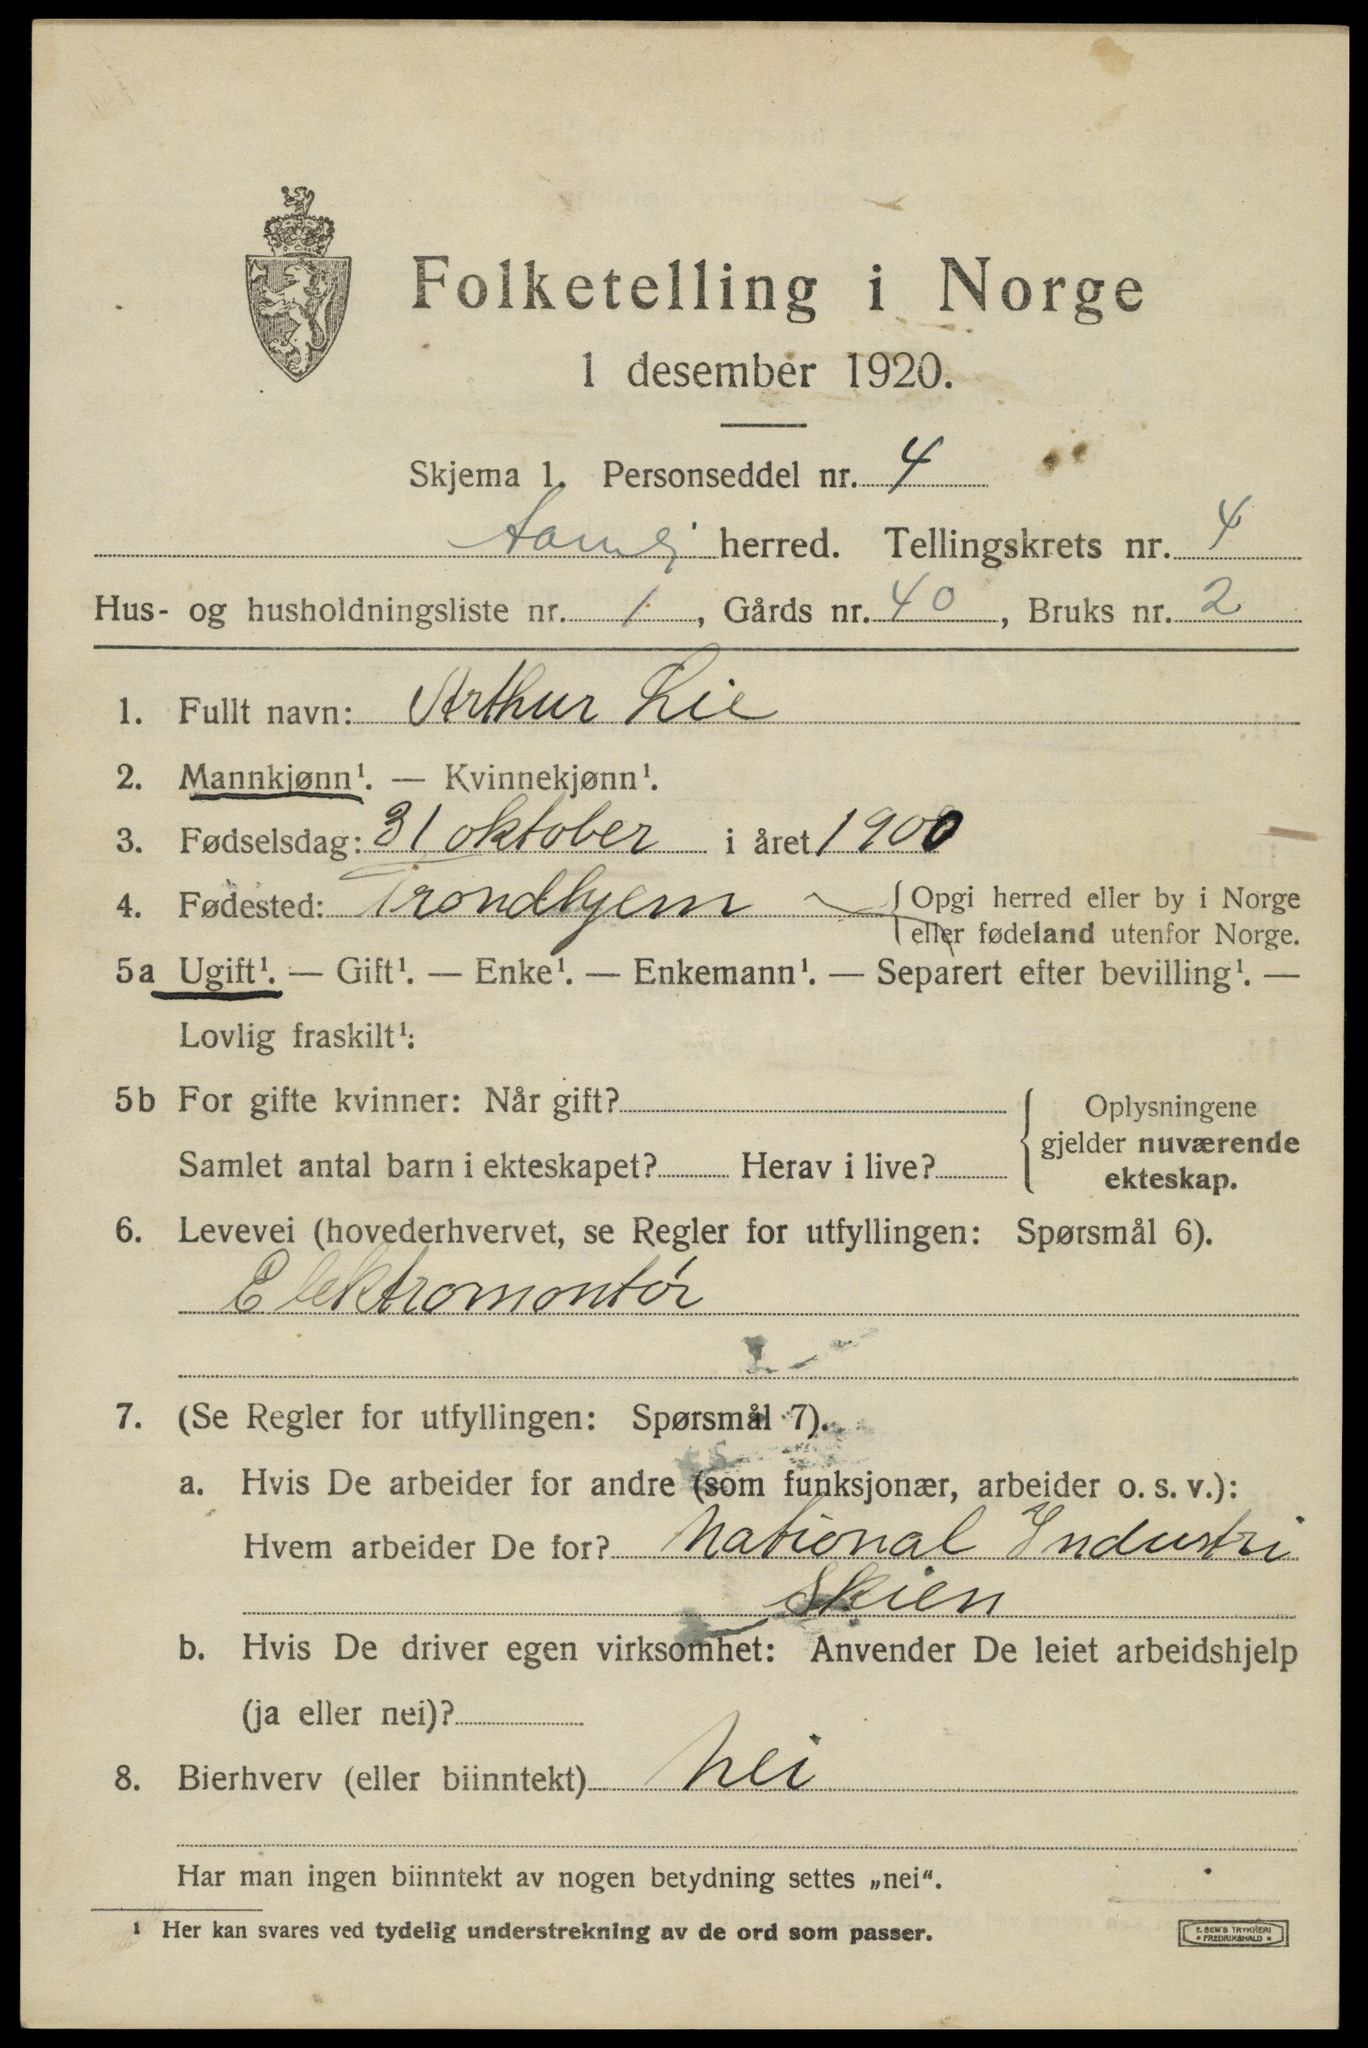 Folketelling i Norge
1 desember 1920.
Skjema 1. Personseddel nr. 4
herred. Tellingskrets nr. 4
Hus- og husholdningsliste nr. 1, Gårds nr. 40, Bruks nr. 2
1. Fullt navn: Arthur Lie
2. Mannkjønn¹. — Kvinnekjønn¹.
3. Fødselsdag: 31 oktober i året 1900
4. Fødested: Trondhjem { Opgi herred eller by i Norge
eller fødeland utenfor Norge.
5a Ugift¹. — Gift¹. — Enke¹. — Enkemann¹. — Separert efter bevilling¹. —
Lovlig fraskilt¹:
5b For gifte kvinner: Når gift? { Oplysningene
gjelder nuværende
Samlet antal barn i ekteskapet? Herav i live? ekteskap.
6. Levevei (hovederhvervet, se Regler for utfyllingen: Spørsmål 6).
Elektromontör
7. (Se Regler for utfyllingen: Spørsmål 7).
a. Hvis De arbeider for andre (som funksjonær, arbeider o. s. v.):
Hvem arbeider De for? National Industri
Skien
b. Hvis De driver egen virksomhet: Anvender De leiet arbeidshjelp
(ja eller nei)?
8. Bierhverv (eller biinntekt) Nei
Har man ingen biinntekt av nogen betydning settes „nei“.
¹ Her kan svares ved tydelig understrekning av de ord som passer.
E. SEM'S TRYKKERI
• FREDRIKSHALD •